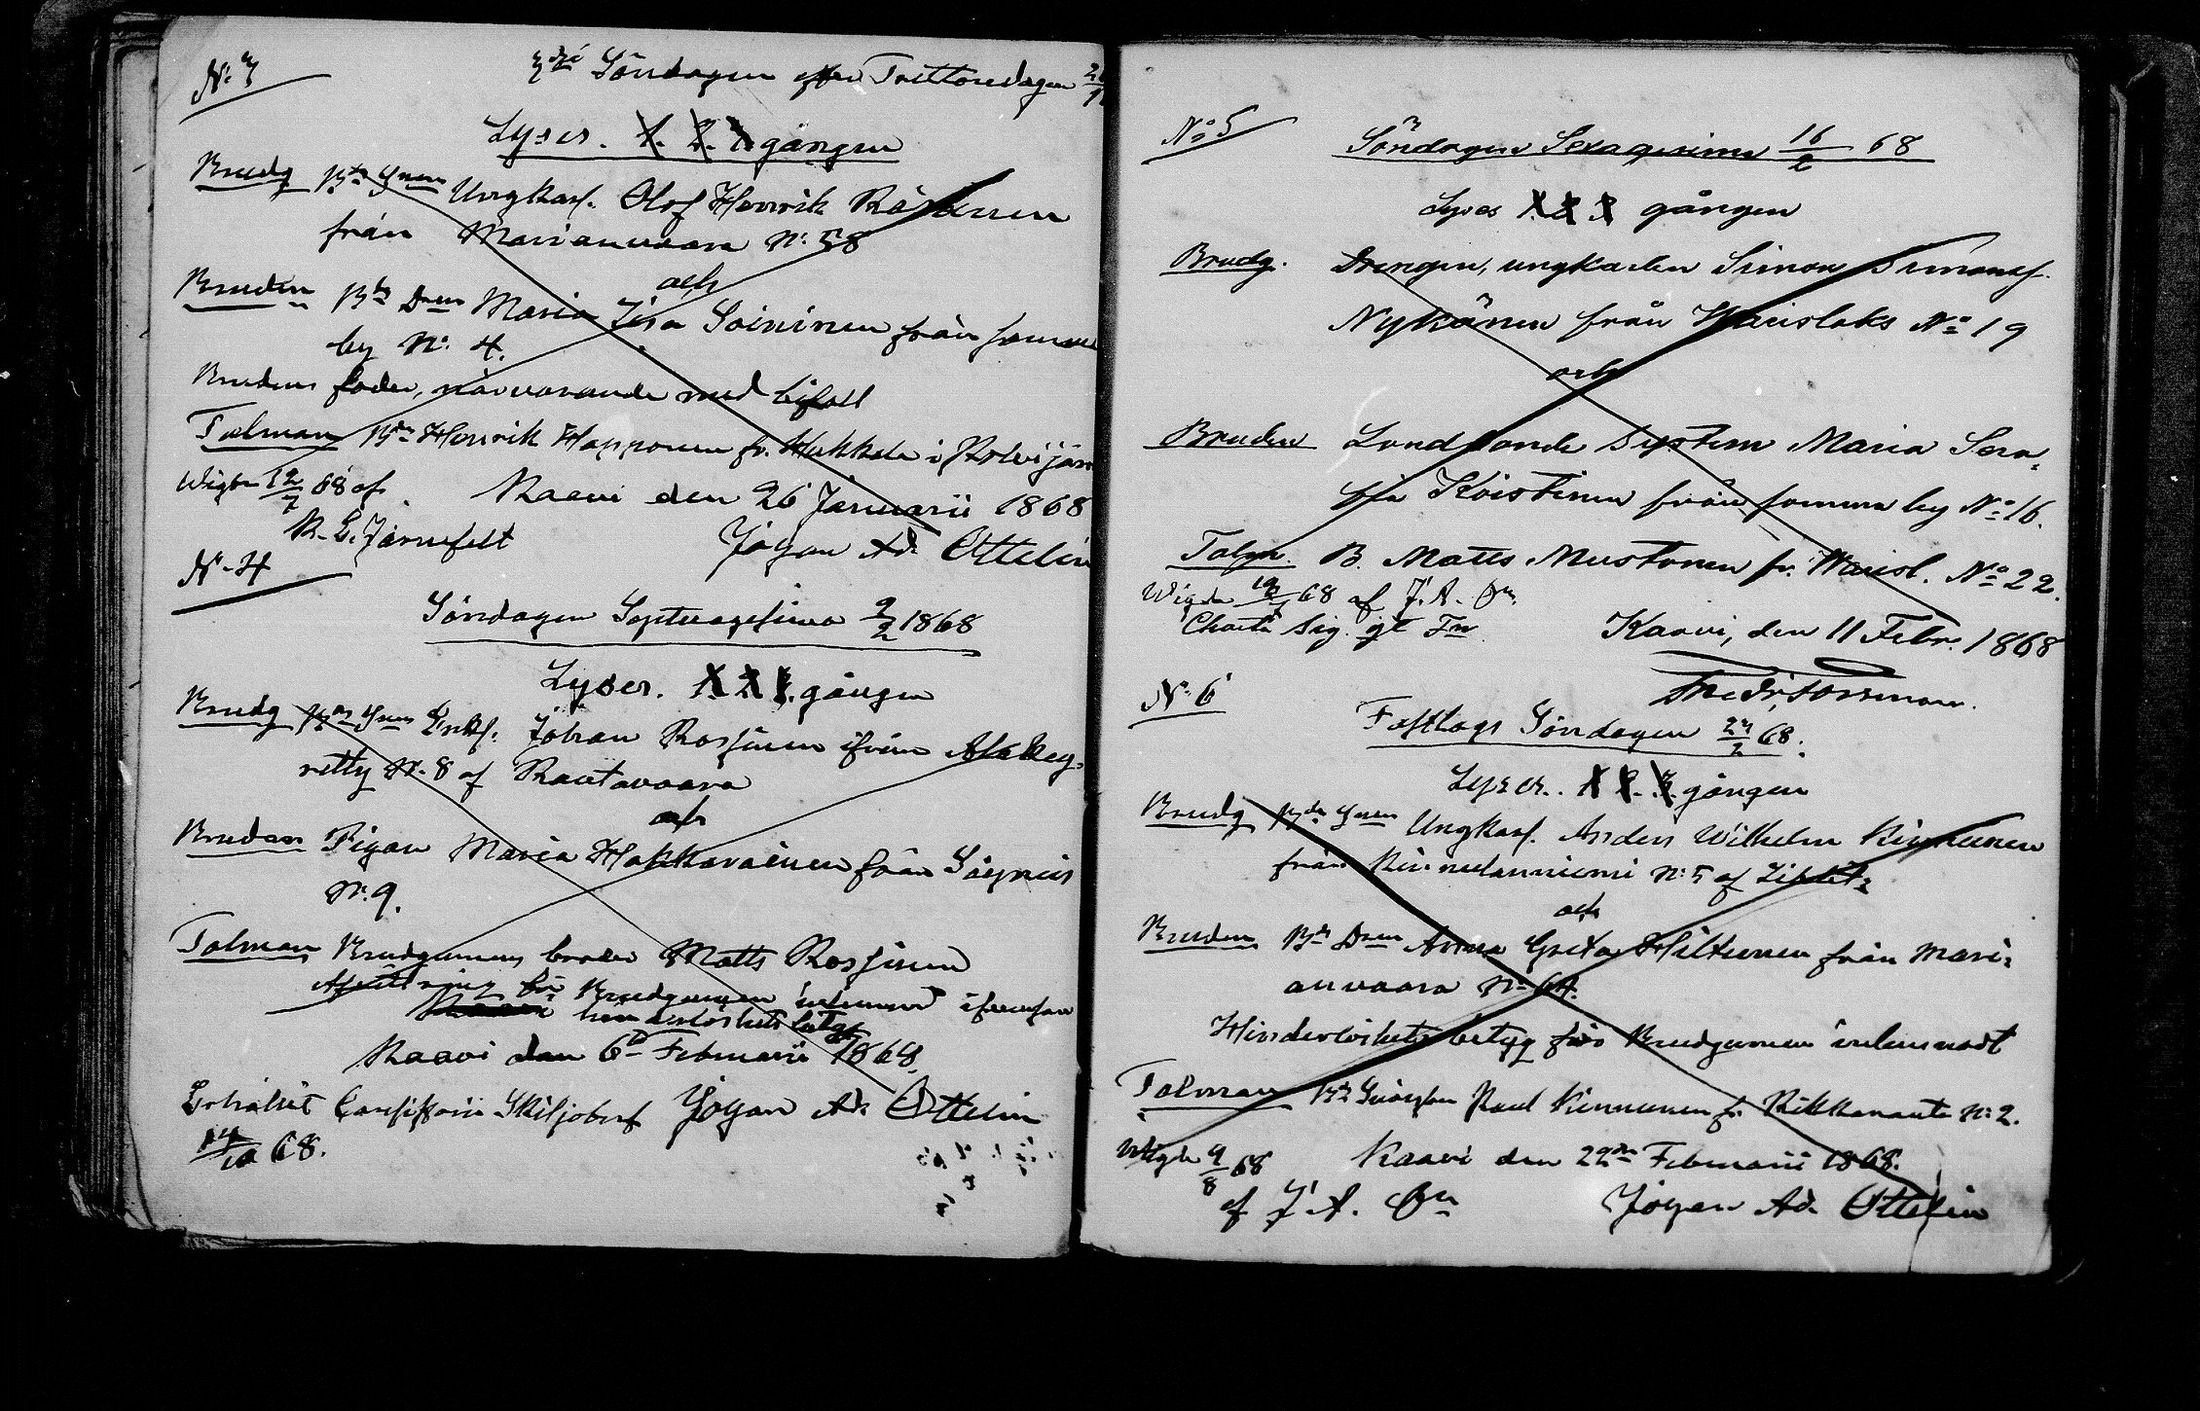 N:o 3
3dje Söndagen efter Trettonedagen
Lyses. 1. 2. 3. gången
Brudg Bde Sonen Ungkarl. Olof Henrik Räsänen
från Marianvaara N:o 58
och
Bruden Bde Dren Maria Lisa Soininen från samma
by N:o 4.
Brudens fader, närvarande med bifall
Talman Bn Henrik Happonen fr. Hukkala i Polvijärvi
Wigde 12/7 68 af Kaavi den 26 Januarii 1868
K. E. Järnefelt Johan Ad. Ottelin
N:o 4
Söndagen Septuagesima 9/2 1868
Lyses. 1. 2. 3. gången
Brudg Bde Sonen Enkl. Johan Rossinen ifrån Alakey-
ritty N:o 8 af Rautavaara
och
Bruden Pigan Maria Hakkarainen från Säyneis
N:o 9.
Talman Brudgumens broder Matts Rossinen
Afvittring för Brudgumen inlemnad
hinderlöshets betyg
Kaavi den 6te Februarii 1868
Erhållit Johan Ad. Ottelin
68.
N:o 5
Söndagen Sexagesima 16/2 68
Lyses 1. 2. 3. gången
Brudg. Drengen, ungkarlen Simon Simonss.
Nykänen från Warislaks N:o 19
och
Bruden Landbonde Systern Maria Sera-
fia Koistinen från samma by N:o 16.
Talm. B. Matts Mustonen fr. Warisl. N:o 22.
Wigde 68 af J. A. On.
Charta Sig. gt Fn Kaavi, den 11 Febr. 1868
Fredr. Forsman.
N:o 6
Fastlags Söndagen 23/2 68.
Lyses. 1. 2. 3. gången
Brudg Bde Sonen Ungkarl. Anders Wilhelm Kinnunen
från Kinnulanniemi N:o 5 af Libelitz
och
Bruden Bde Dren Anna Greta Hiltunen från Mari-
anvaara N:o 64.
Hinderlöshets betyg för Brudgumen inlemnadt
Talman Bn Svågern Paul Kinnunen fr. Rikkaranta N:o 2.
Wigde 9/8 68 Kaavi den 22dra Februarii 1868.
af J. A. On Johan Ad. Ottelin